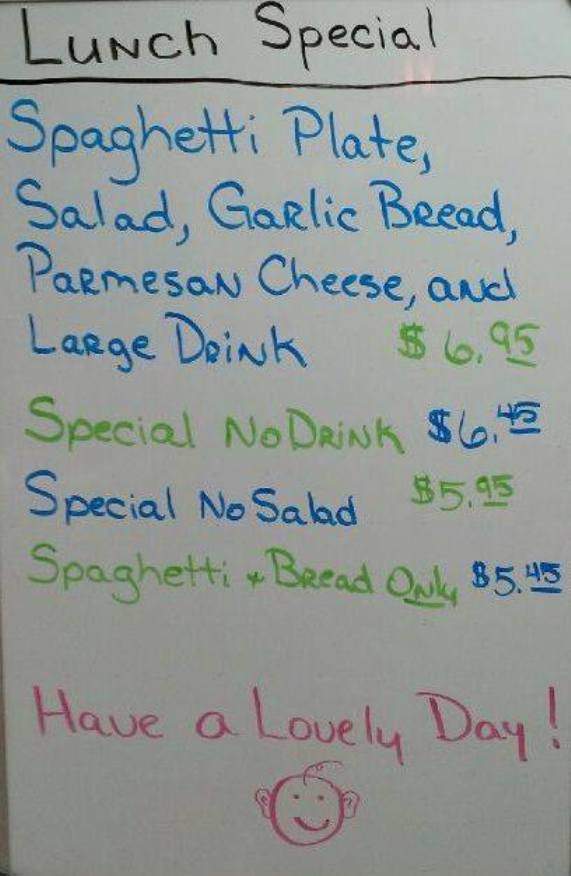 Lunch Special
Spaghetti Plate,
Salad, Garlic Bread,
Parmesan Cheese, and
Large Drink $6.95
Special No Drink $6.45
Special No Salad $5.95
Spaghetti & Bread Only $5.45
Have a Lovely Day!